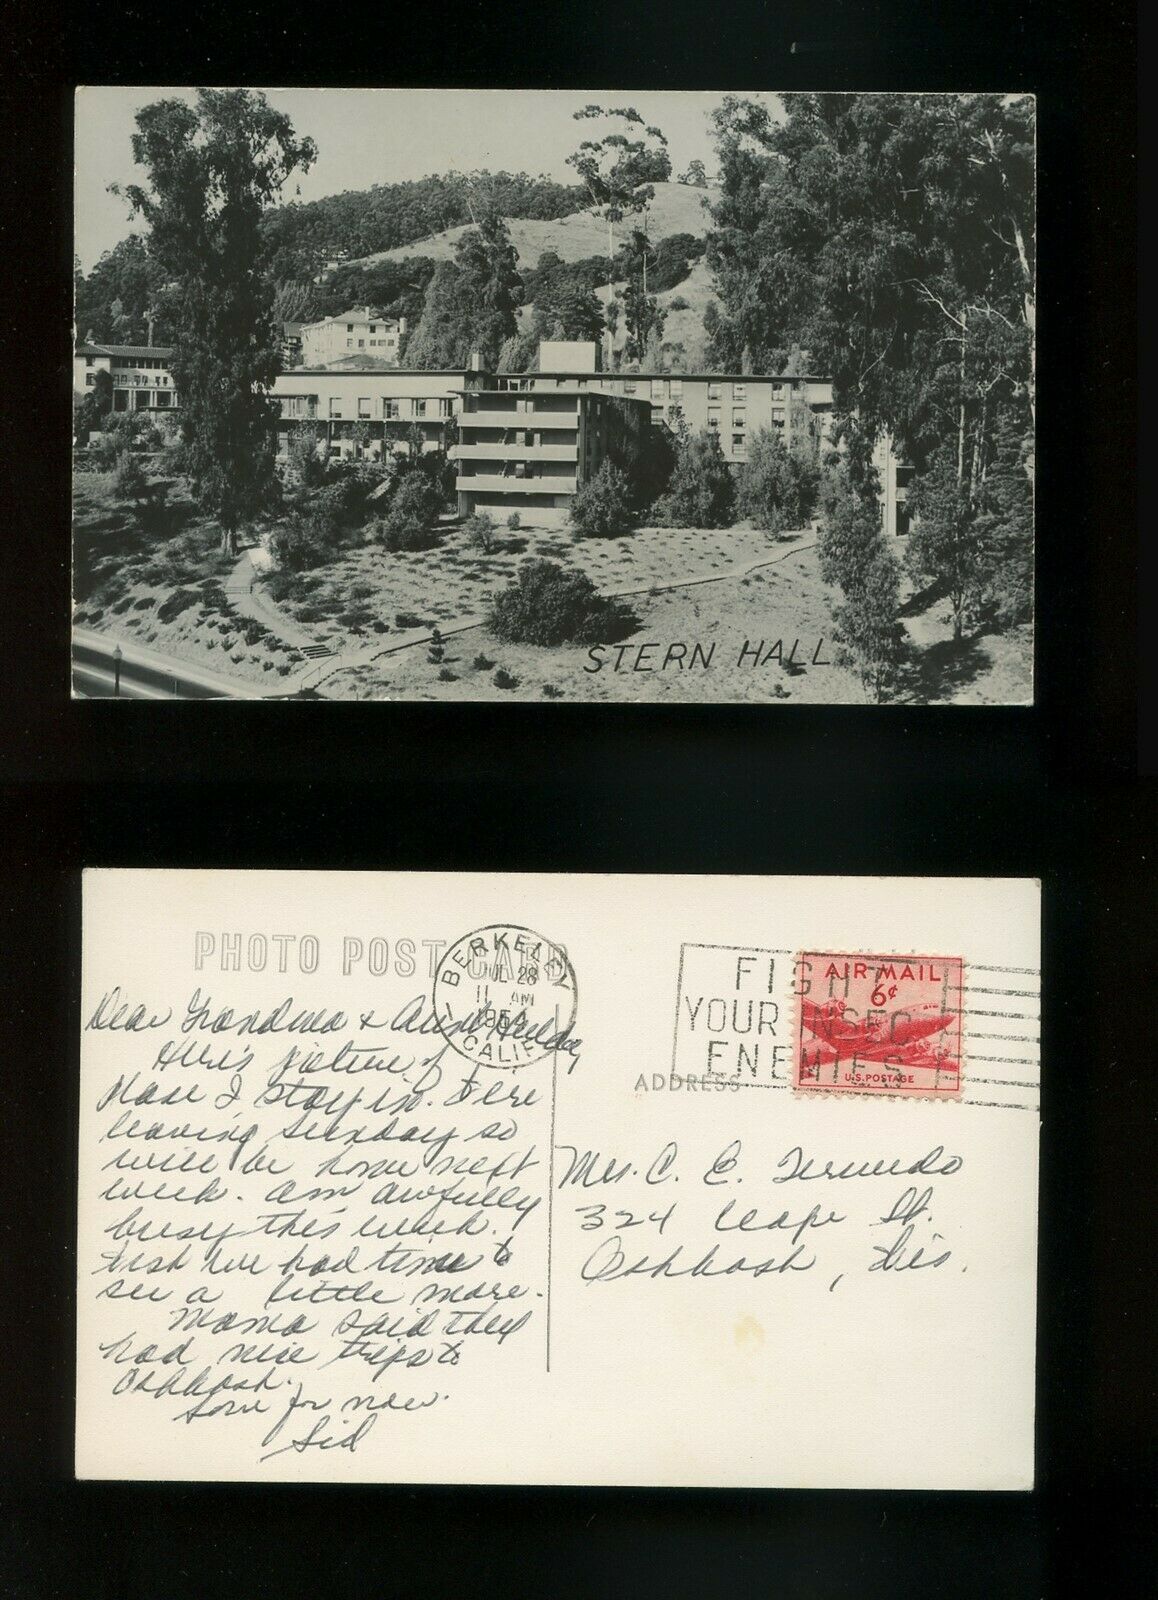 STERN HALL
PHOTO POST CARD
BERKELEY
JUL 28
11 AM
1954
CALIF.
FIGHT
YOUR INSEC
ENEMIES
AIR MAIL
6¢
U.S. POSTAGE
ADDRESS
Dear Grandma & Aunt
Here's picture of
place I stay in.
leaving Sunday so
will be home next
week. Am awfully
busy this week.
I've had time to
see a little more.
Mama said they
had nice trips to
Oshkosh.
Love for now.
Sid
Mrs. C. E.
324 Cape St.
Oshkosh, Wis.